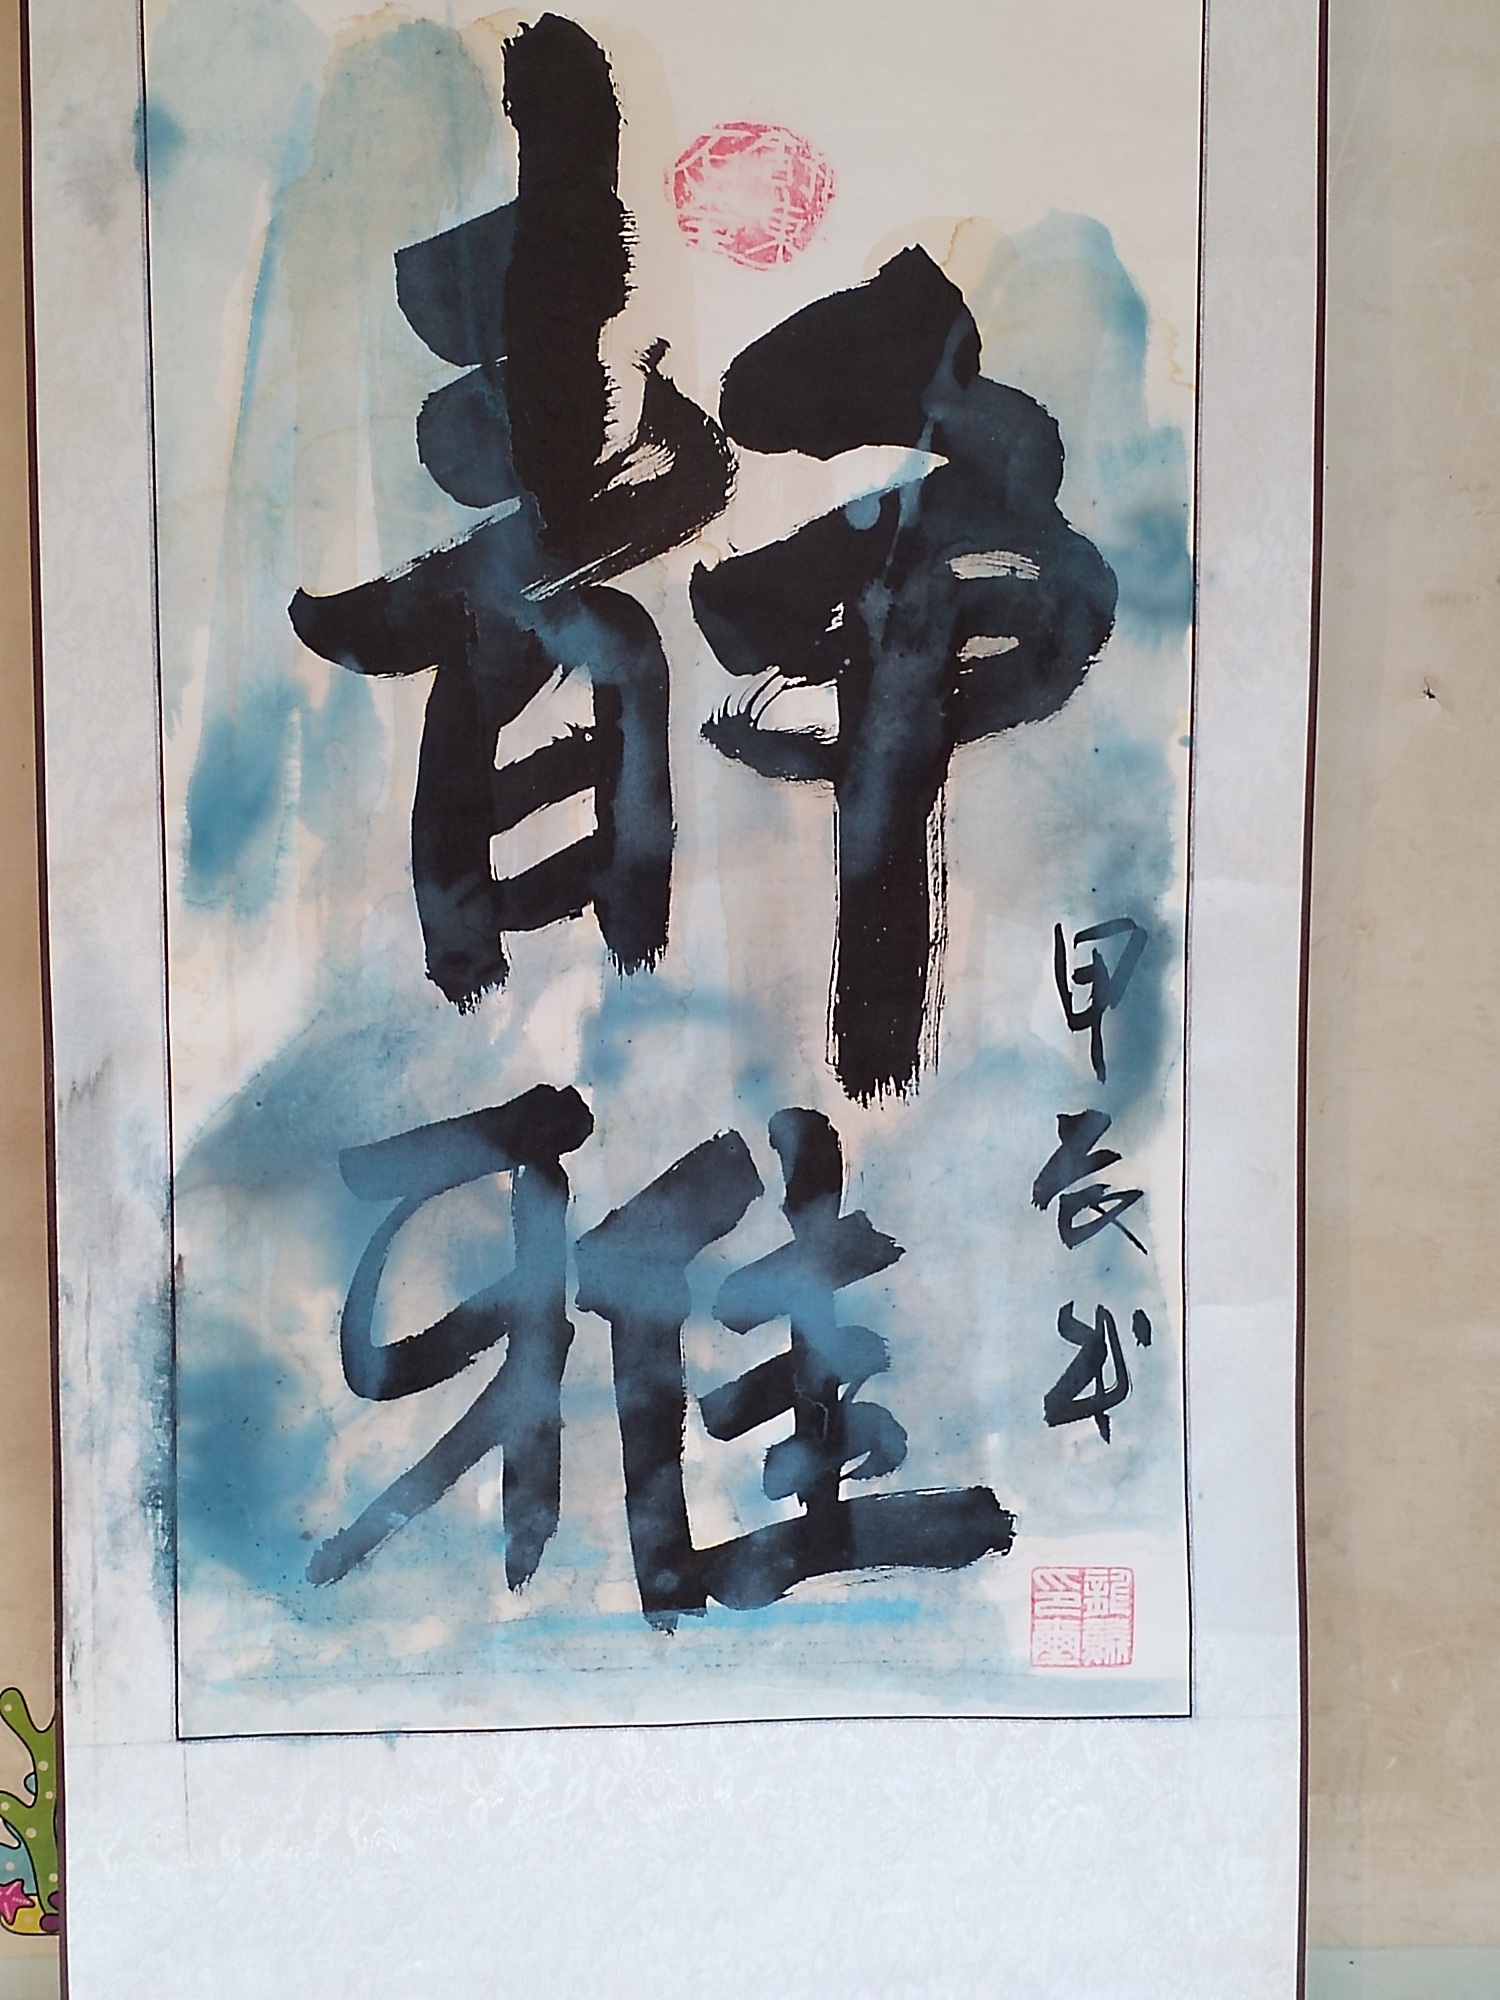 靜雅
甲辰年